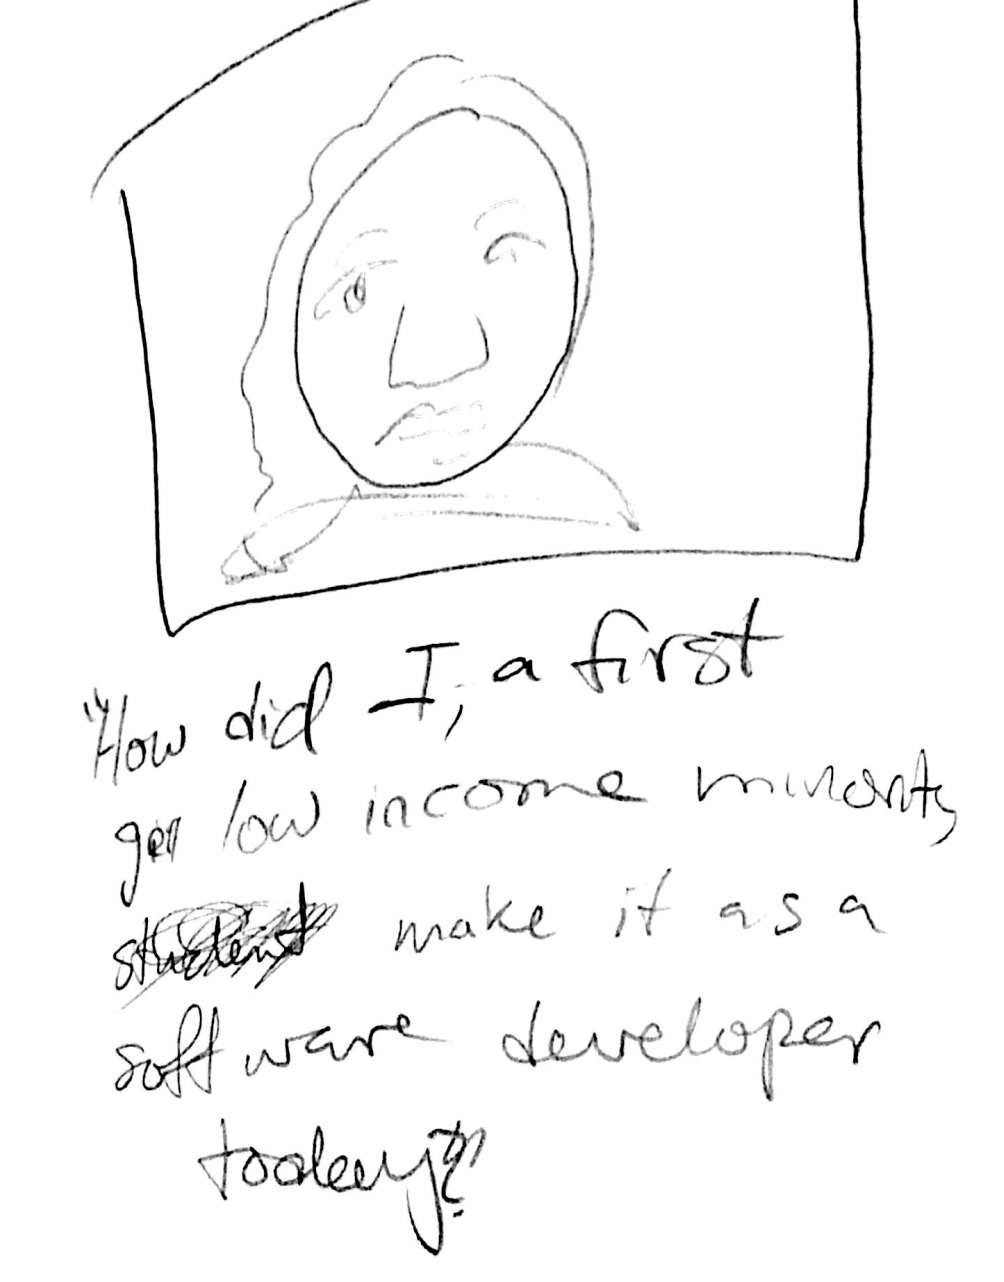 "How did I, a first
gen low income minority
student make it as a
software developer
today?"